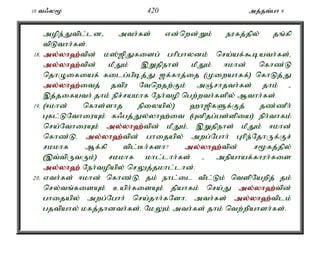 10 வஃலமூ 420 அத்தவ்பா 9
அழிந்துவிட்டன. அவர்கள் என்றென்றும் நரகத்தில் தங்கி
விடுவார்கள்.
18. அல்லாஹ்வின் மஸ்ஜிதுகளைப் பரிபாலனம் செய்யக்கூடியவர்கள்,
அல்லாஹ்வின் மீதும் இறுதிநாள் மீதும் ஈமான் கொண்டு
தொழுகையைக் கடைப்பிடித்து ஜக்காத்தை (முறையாகக்) கொடுத்து
அல்லாஹ்வைத் தவிர வேறெதற்கும் அஞ்சாதவர்கள் தாம் -
இத்தகையவர் தாம் நிச்சயமாக நேர்வழி பெற்றவர்களில் ஆவார்கள்.
19. (ஈமான் கொள்ளாத நிலையில்) ஹாஜிகளுக்குத் தண்ணீர்
புகட்டுவோரையும் கஃபத்துல்லாஹ்வை (புனிதப்பள்ளியை) நிர்வாகம்
செய்வோரையும் அல்லாஹ்வின் மீதும், இறுதிநாள் மீதும் ஈமான்
கொண்டு, அல்லாஹ்வின் பாதையில் அறப்போர் புரிந்தோருக்குச்
சமமாக ஆக்கி விட்டீர்களா? அல்லாஹ்வின் சமூகத்தில்
(இவ்விருவரும்) சமமாக மாட்டார்கள் - அநியாயக்காரர்களை
அல்லாஹ் நேர்வழியில் செலுத்தமாட்டான்.
20. எவர்கள் ஈமான் கொண்டு, தம் நாட்டை விட்டும் வெளியேறித் தம்
செல்வங்களையும் உயிர்களையும் தியாகம் செய்து அல்லாஹ்வின்
பாதையில் அறப்போர் செய்தார்களோ, அவர்கள் அல்லாஹ்விடம்
பதவியால் மகத்தானவர்கள். மேலும் அவர்கள் தாம் வெற்றியாளர்கள்.